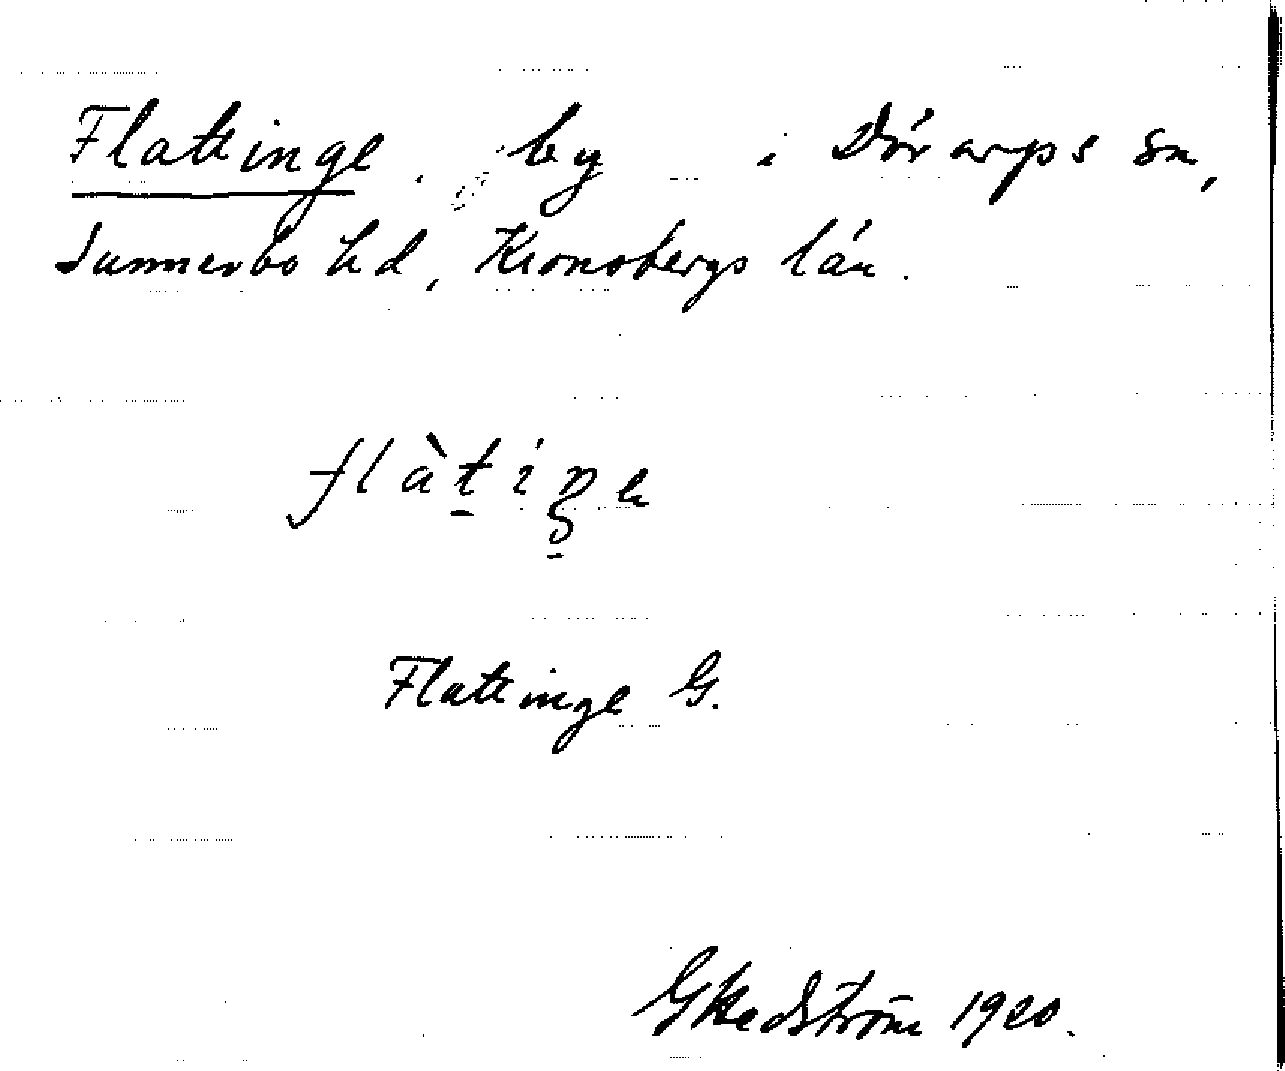 Flattinge by i Dörarps sn,
Sunnerbo hd, Kronobergs län.
flàti̱ŋe
Flattinge G.
G Hedström 1920.